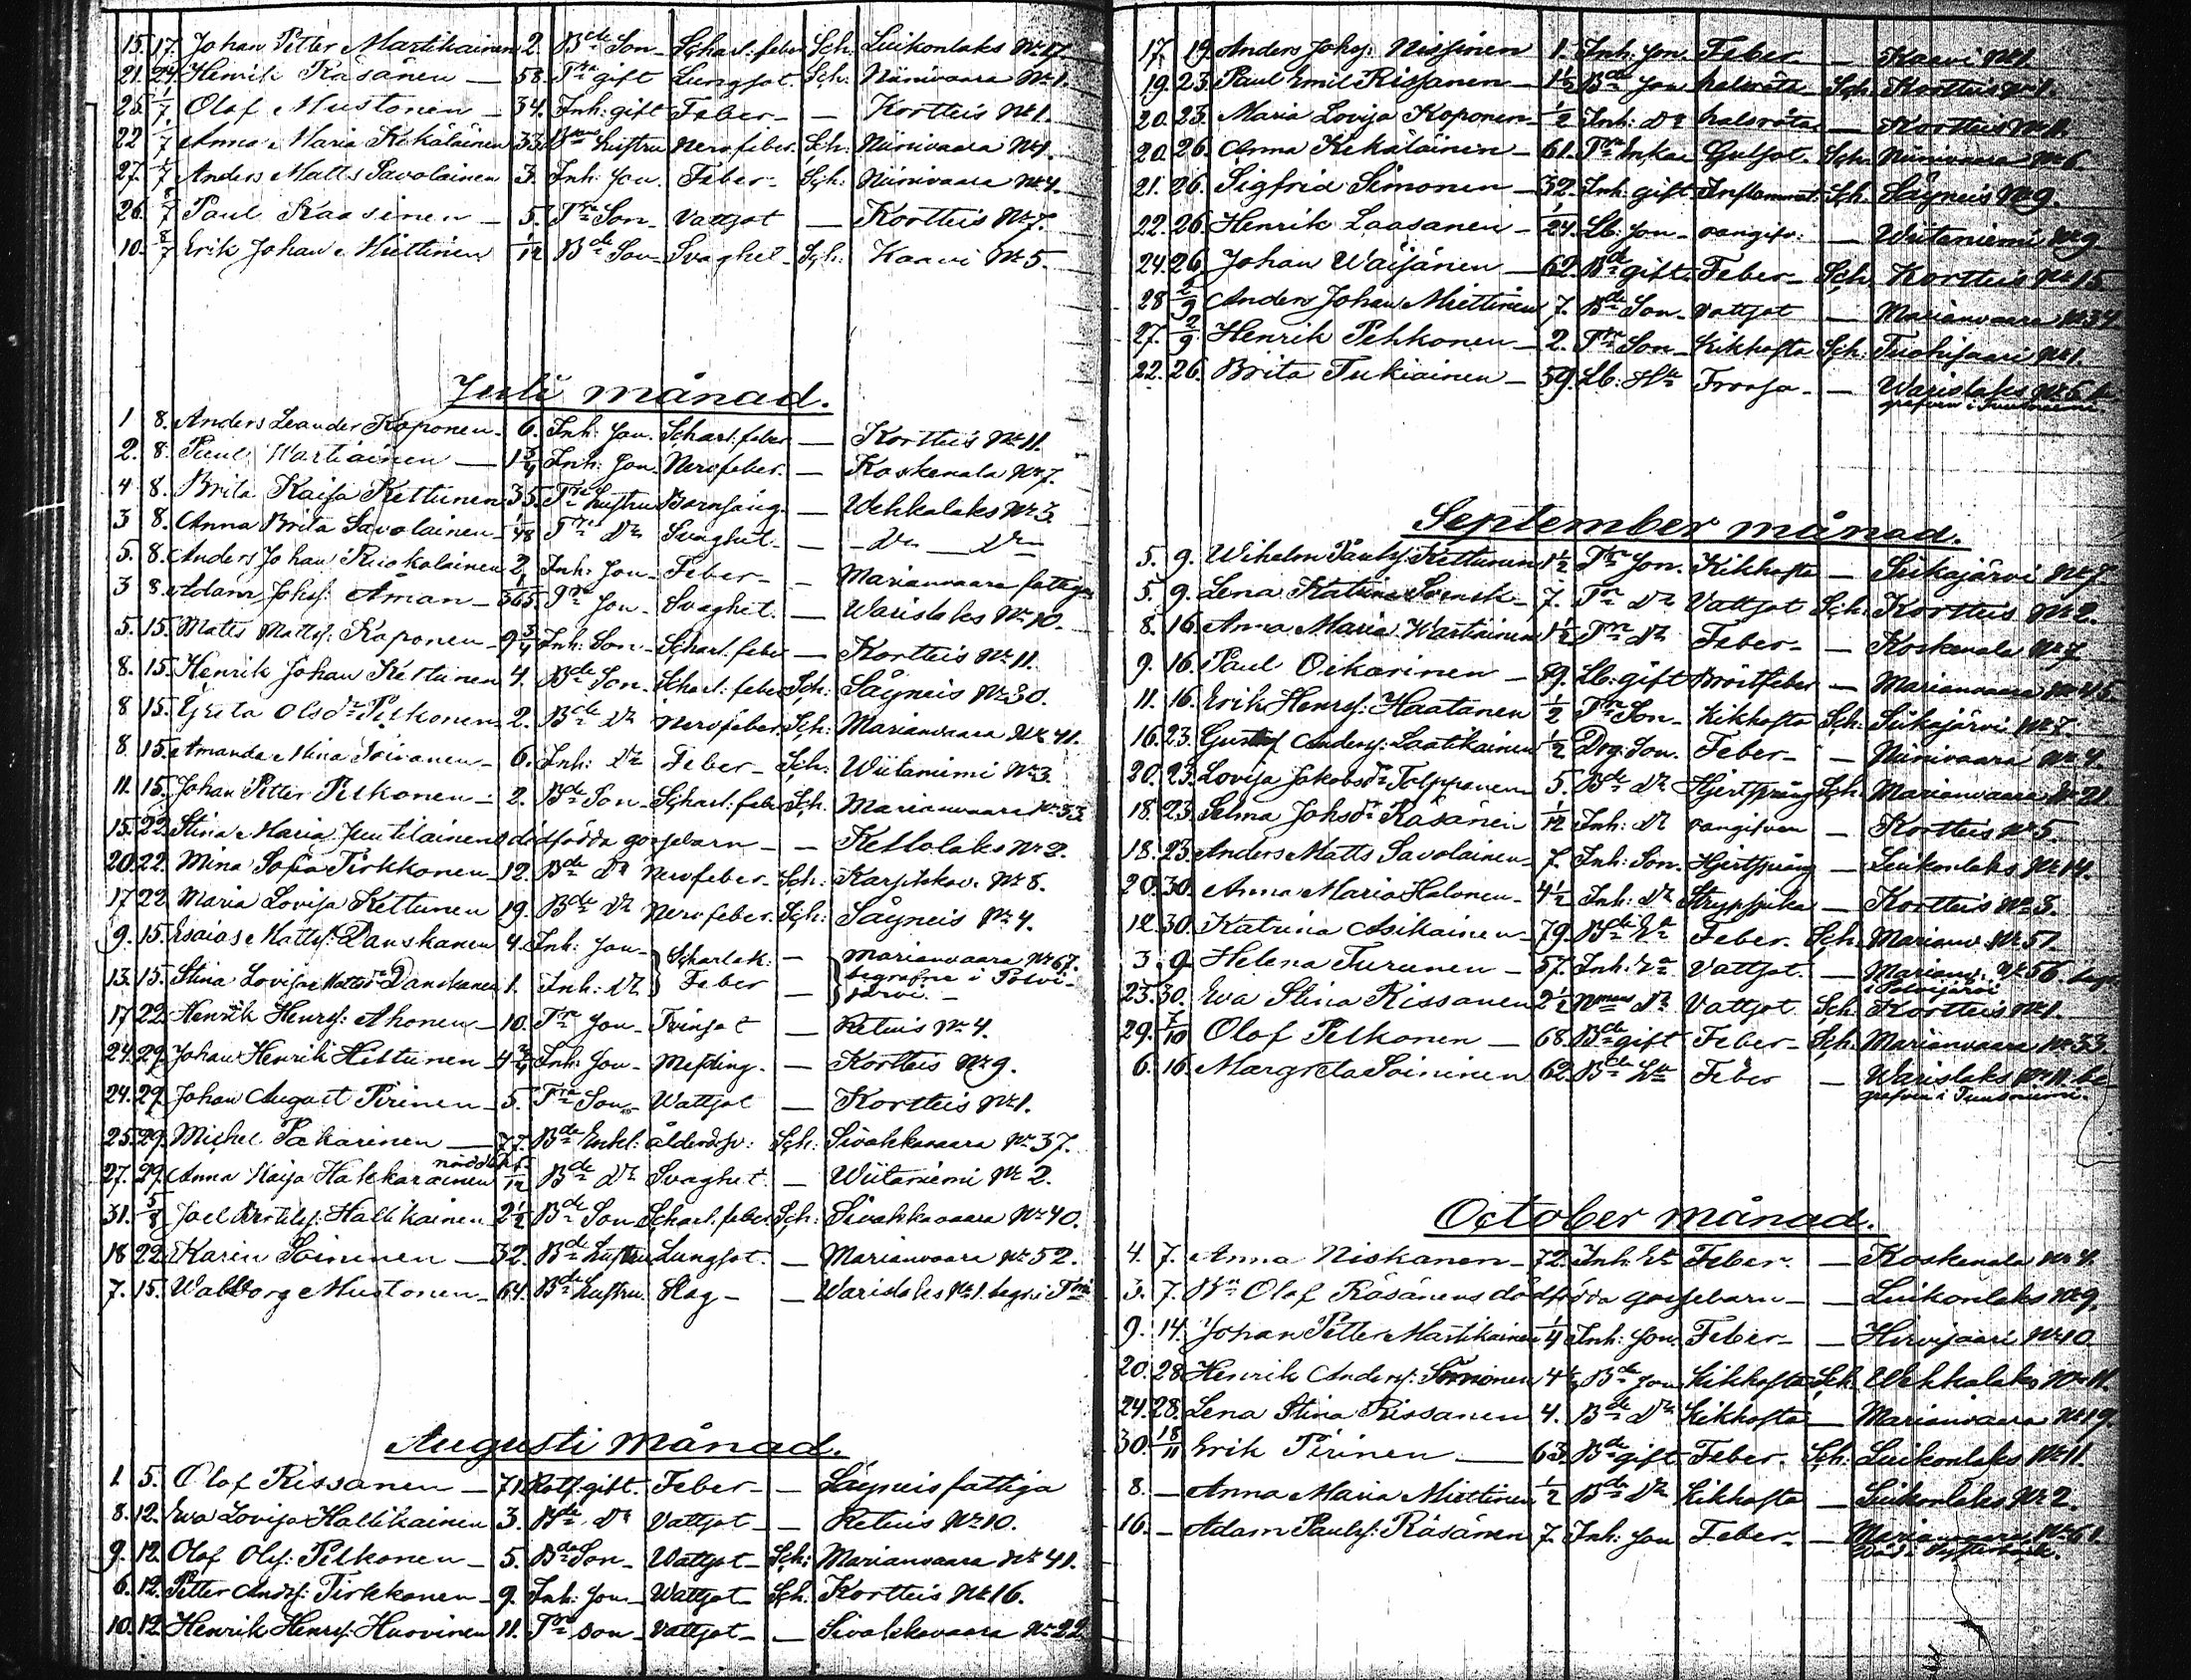 15. 17. Johan Petter Martikainen 2. Bde Son Scharl: feber Sch: Luikonlaks No 17.
21. 24. Henrik Räsänen 58. Tr gift Lungsot. Sch: Niinivaara No 1.
25. 1/7. Olof Mustonen 34. Inh: gift Feber Kortteis No 1.
22 1/7 Anna Maria Kekäläinen 33. hustru Nervfeber. Sch: Niinivaara No 4.
27. 1/7 Anders Matts Savolainen 3. Inh: son. Feber Sch: Niinivaara No 4.
26. 8/7 Paul Kaasinen 5. Tr Son Vattsot Kortteis No 7.
10. 8/7 Erik Johan Miettinen 1/12 Bde Son Svaghet Sch: Kaavi No 5.
Juli månad.
1 8. Anders Leander Koponen 6. Inh: son. Scharl: feber Kortteis No 11.
2. 8. Paul Wartiainen 1 3/4 Inh: Son. Nervfeber. Koskenala No 7.
4 8. Brita Kaisa Kettunen 35. Tr hustru Barnsäng. Wehkalaks No 3.
3 8. Anna Brita Savolainen 1/48 Tr Dr Svaghet Dr Dr
5. 8. Anders Johan Ruokolainen 2. Inh: Son Feber Marianvaara fattiga
3 8. Adam Johs: Åman 1/365. Tr Son Svaghet. Warislaks No 10.
5. 15. Matts Matts: Koponen 9 3/4 Inh: Son Scharl. feber Kortteis No 11.
8. 15. Henrik Johan Kettunen 4. Bde Son Scharl: feber Sch: Säyneis No 30.
8 15. Greta Olsdr Pelkonen 2. Bde Dr Nervfeber Sch: Marianvaara No 41.
8. 15. Amanda Mina Soivanen 6. Inh: Dr Feber Sch: Wiitaniemi No 3.
11. 15. Johan Petter Pelkonen 2. Bde Son Scharl: feber Sch. Marianvaara No 33
15. 22. Stina Maria Juutilainens dödfödda gossebarn Kettolaks No 2.
20. 22. Mina Sofia Tirkkonen 12. Bde Dr Nervfeber Sch: Karjikkov. No 8.
17 22. Maria Lovisa Kettunen 19. Bde Dr Nervfeber. Sch: Säyneis No 4.
9. 15. Esaias Matts: Danskanen 4. Inh: Son Scharlak: Marianvaara No 67.
13. 15. Stina Lovisa Mattsdr Danskanen 1. Inh: Dr Feber begrafne i Polvijärvi.
17 22. Henrik Henrs: Ahonen 10. Tr Son Tvinsot Retuis No 4.
24. 29. Johan Henrik Hettunen 4 3/4 Inh: Son Messling. Kortteis No 9.
24. 29. Johan August Pirinen 5. Tr Son Wattsot Kortteis No 1.
25. 29. Michel Pakarinen 77. Bde Enkl: ålderdsv: Sch: Sivakkavaara No 37.
27. 29. Anna Kaisa Hakkarainen nöddöpt 1/12 Bde Dr Svaghet. Wiitaniemi No 2.
31. 5/8 Joel Bertils: Hallikainen 2 1/2 Bde Son Scharl. feber. Sch: Sivakkavaara No 40.
18 22. Karin Soininen 32. Bde hustru Lungsot. Marianvaara No 52.
7. 15. Walborg Mustonen 64. Bde hustru Slag Warislaks No 1. begr: i
Augusti månad.
1. 5. Olof Rissanen 71. Rotf: gift. Feber Säyneis fattiga
8. 12. Eva Lovisa Hallikainen 3. Bde Dr Vattsot Retuis No 10.
9. 12. Olof Ols: Pelkonen 5. Bde Son Wattsot Sch: Marianvaara No 41.
6. 12. Petter Ands: Tirkkonen 9. Inh: Son Wattsot Sch. Kortteis No 16.
10. 12. Henrik Henrs: Hurvinen 11. Tr son Vattsot Sivakkavaara No 22
17. 19. Anders Johs: Nissinen 1. Inh: son. Feber Kaavi No 1
19. 23. Paul Emil Rissanen 1 1/2 Bde Son halsröta Sch Kortteis No 1.
20. 23. Maria Lovisa Koponen 1/2 Inh: Dr halsröta Kortteis No 11.
20. 26. Anna Kekäläinen 61. Tr Enka Gulsot Sch. Niinivaara No 6.
21. 26. Sigfrid Simonen 32. Inh: gift Inflammat: Sch. Säyneis No 9.
22. 26. Henrik Laasanen 1/24. Lb: Son oangifv: Wiitaniemi No 9
24. 26. Johan Waisänen 62. Bde gift Feber Sch Kortteis No 15
28 2/9 Anders Johan Miettinen 7. Bde Son Vattsot Marianvaara No 34
27. 2/9 Henrik Pehkonen 2. Tr Son Kikhosta Sch. Tuohisaari No 1.
22. 26. Brita Tukiainen 59. Lb: Frossa Warislaks No 5 be
grafven i
September månad.
5. 9. Wihelm Pauls: Kettunen 1 1/2 Tr Son. Kikhosta Siikajärvi No 7
5. 9. Lena Katrina Svensk 7. Tr Dr Vattsot Sch: Kortteis No 2.
8. 16. Anna Maria Wartiainen 1 1/2 Tr Dr Feber Koskenala No 7
9. 16. Paul Oikarinen 59. Lb: gift Bröstfeber Marianvaara No 45
11. 16. Erik Henrs: Haatanen 1/2 Tr Son Kikhosta Sch: Siikajärvi No 7.
16. 23. Gustaf Anders: Laatikainen 1/2 Drg: Son. Feber Niinivaara No 4.
20. 23. Lovisa Jakobsdr Tolppanen 5. Bde Dr Hjertsprång Sch. Marianvaara No 21
18. 23. Selma Johsdr Räsänen 1/12 Inh: Dr oangifven Kortteis No 5.
18. 23. Anders Matts Savolainen 7. Inh: Son. Hjertsprång Luikonlaks No 14.
20. 30. Anna Maria Halonen 4 1/2 Inh: Dr Strypsjuka Kortteis No 3.
12. 30. Katrina Asikainen 79. Bde Feber. Sch. Marianv No 51.
3. 9. Helena Turunen 57. Inh: Vattsot. Marianv. No 56. begr
i Polvijärvi
23. 30. Eva Stina Rissanen 2 1/2 Dr Vattsot Sch Kortteis No 1.
29. 7/10 Olof Pelkonen 68. Bde gift Feber Sch. Marianvaara No 33.
6. 16. Margreta Soininen 62. Bde Feber Warislaks No 11. be
grafven i
October månad.
4. 7. Anna Niskanen 72. Inh: Feber Koskenala No 4.
3. 7. Olof Räsänens dödfödda gossebarn Luikonlaks No 9.
9. 14. Johan Petter Martikainen 1/4 Inh: Son. Feber Hirvisaari No 10.
20. 28 Henrik Anders: Simonen 4 1/2 Bde Son Kikhosta Sch. Wehkalaks No 11.
24. 28. Lena Stina Rissanen 4. Bde Dr Kikhosta Marianvaara No 19.
30. 18/11 Erik Pirinen 63. Bde gift Feber. Sch: Luikonlaks No 11
8. Anna Maria Miettinen 1/2 Bde Dr Kikhosta Luikonlaks No 2.
16. Adam Pauls: Räsänen 7. Inh: Son Feber Marianvaara No 61.